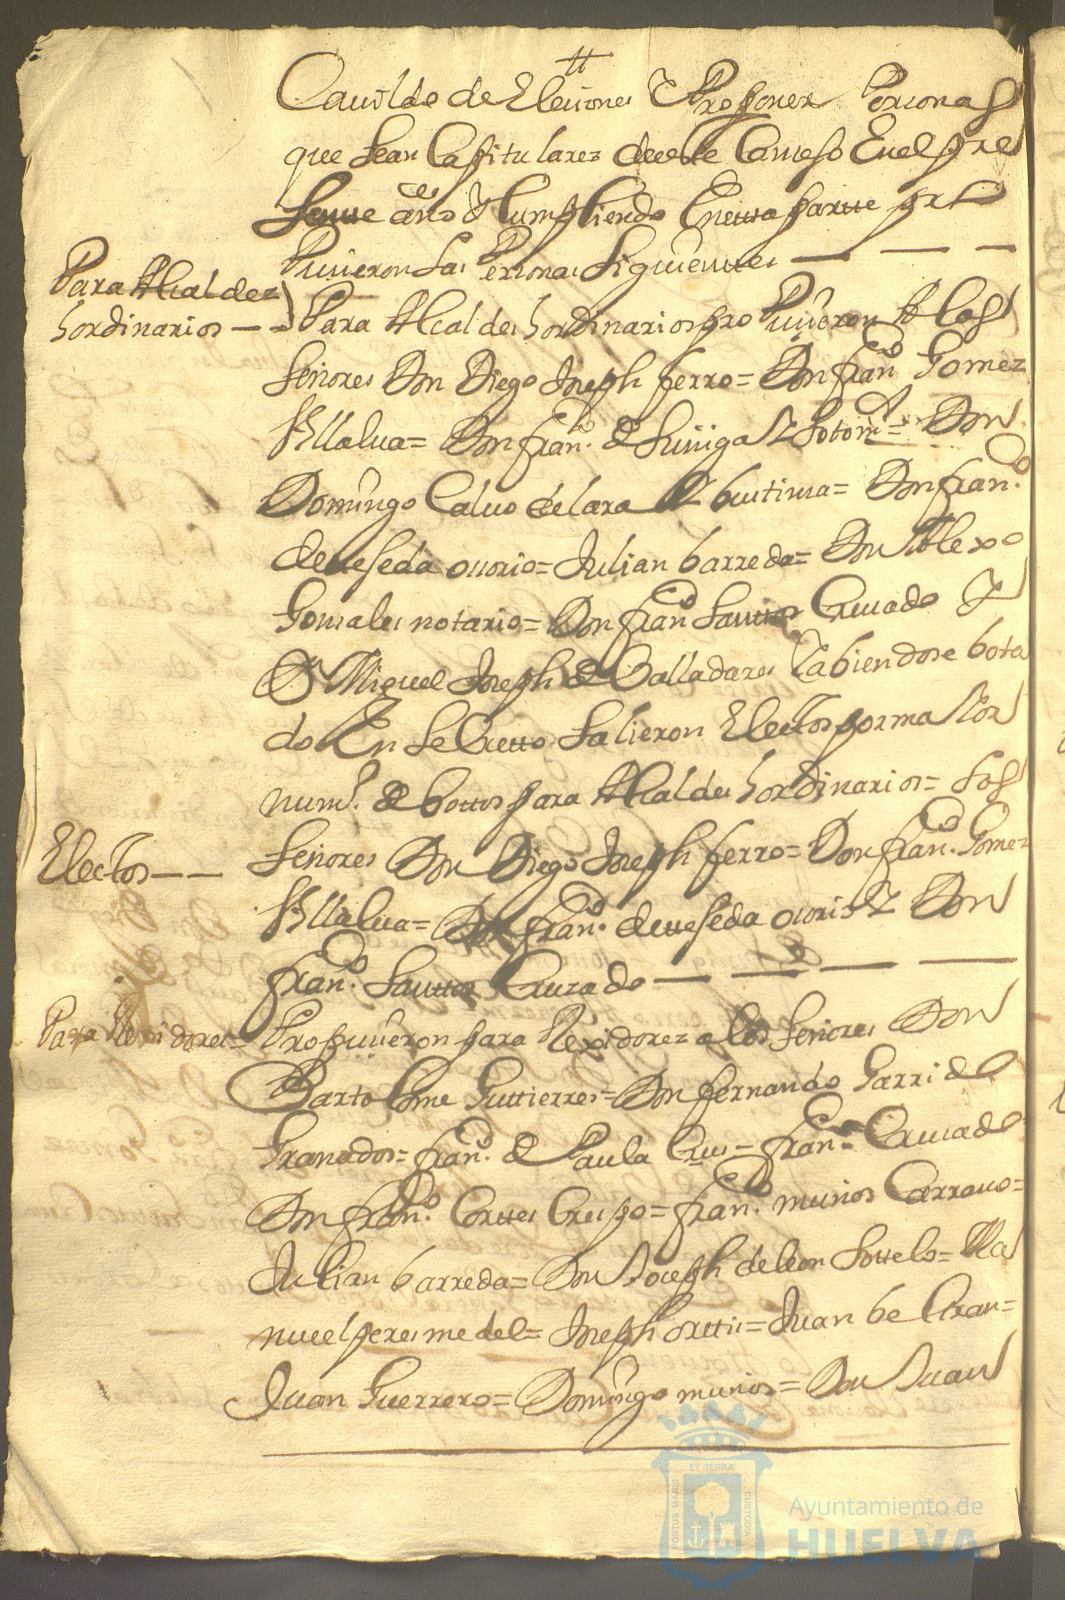 tt
Cavildo de Eleciones Y Proponer Personas
que sean Capitulares deeste Conceso En el pre
sente año Y Cumpliendo En esta partte pro
Pusieron Las Personas Siguienttes — — —
Para Alcaldez
hordinarios — —
Para Alcaldes hordinarios pro Pusieron A los
señores Don Diego Joseph ferro = Don fran.co Gomez
Villalva = Don fran.co de Suñiga Y Sotom.r = Don
Domingo Calvo de lara Y = Don fran.co
de Zeseda ossorio = Julian barreda = Don Alexo
Gonsales notario = Don fran.co Santtos Crusado Y
D.n Miguel Joseph de Valladares Y abiendose bota
do En secretto Salieron Electos por maior
num.o de bottos para Alcaldes hordinarios = Los
Electos — —
señores Don Diego Joseph ferro = Don fran.co Gomez
Villalva = Don fran.co de Zeseda ossorio Y Don
fran.co Santtos Cruzado — — — —
Para Rexidores =
Propusieron para Rexidorez a los señores Don
Bartolome Guttierres = Don fernando Garrido
Granados = fran.co de Paula Crus = fran.co Crusado
Don fran.co Corttes Crespo = fran.co muños Carrasco =
Julian barreda = Don Joseph de leon Sottelo = Ma
nuel peres medel = Joseph orttis = Juan be Gran =
Juan Guerrero = Domingo muños = Don Juan
PORTUS MARIS
ET TERRÆ
CUSTODIA
Ayuntamiento de
HUELVA